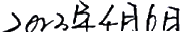 2023年4月6日